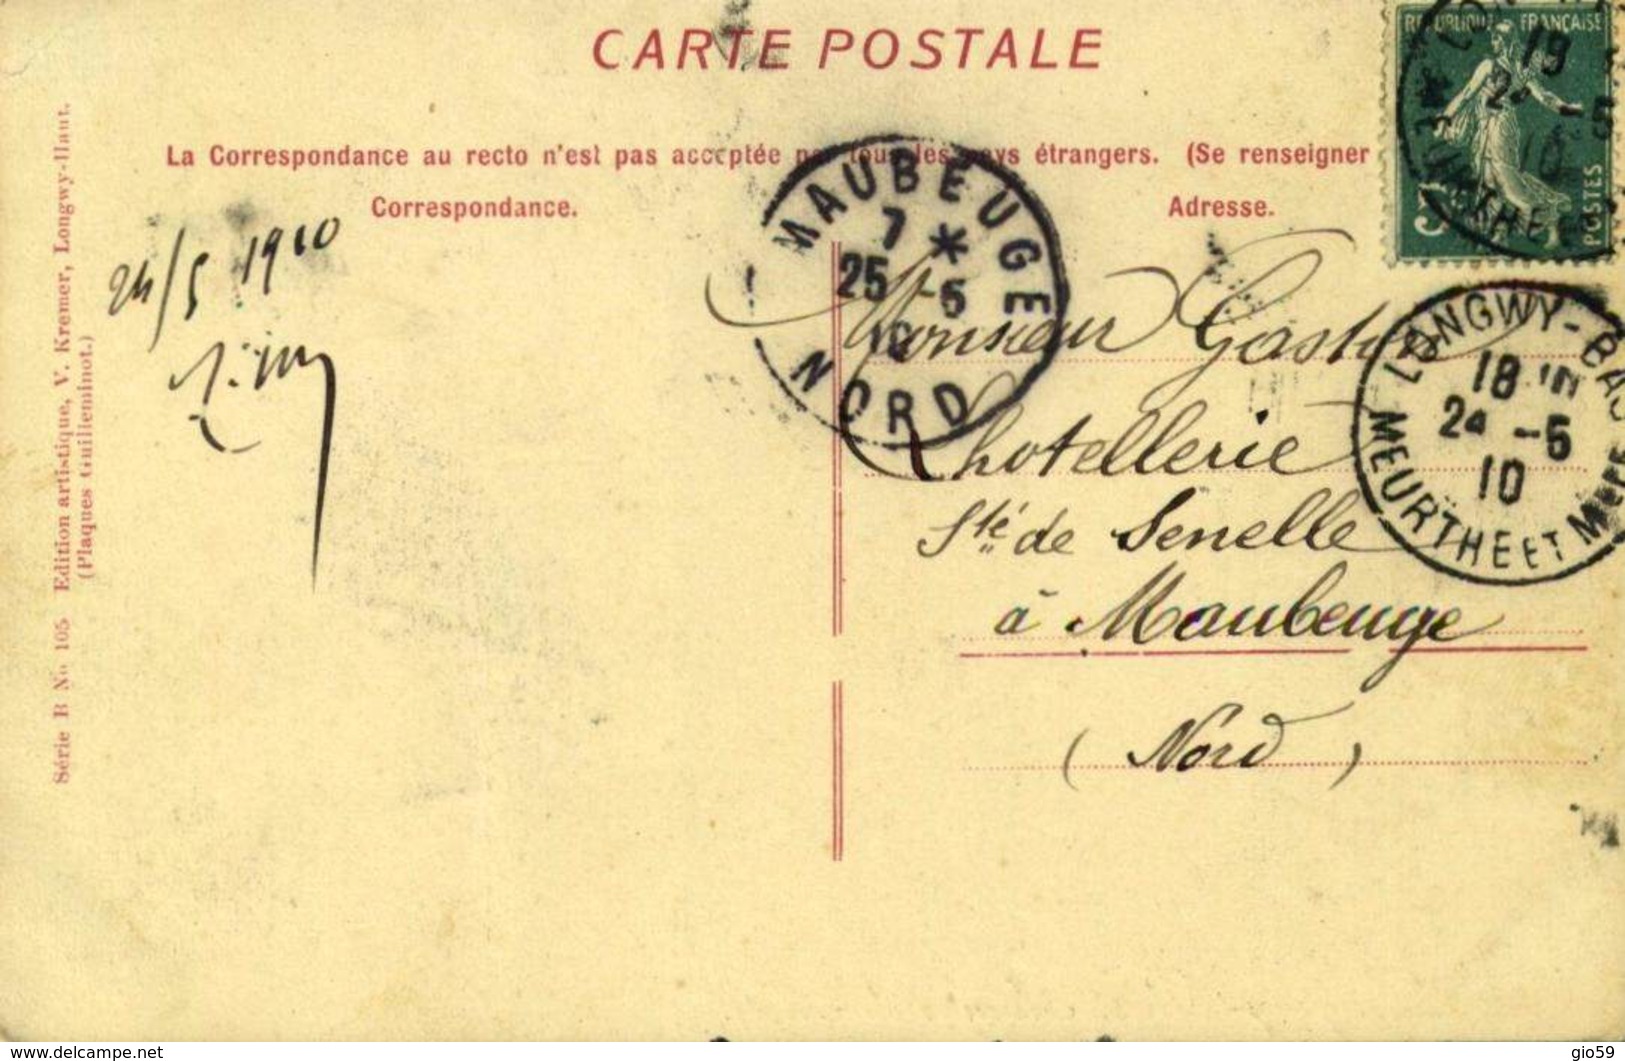 CARTE POSTALE
La Correspondance au recto n'est pas acceptée par tous les pays étrangers. (Se renseigner
Correspondance.
Adresse.
REPUBLIQUE FRANÇAISE
POSTES
19
24 -5
10
MEURTHE ET
MAUBEUGE
7 *
25 -5
10
NORD
LONGWY-BAS
18
24 -5
10
MEURTHE ET MLLE
24/5 1910
Monsieur Gaston
Lhotellerie
Sté de Senelle
à Maubeuge
(Nord)
Série B No 105 Edition artistique, V. Kremer, Longwy-Haut.
(Plaques Guilleminot.)
www.delcampe.net
gio59